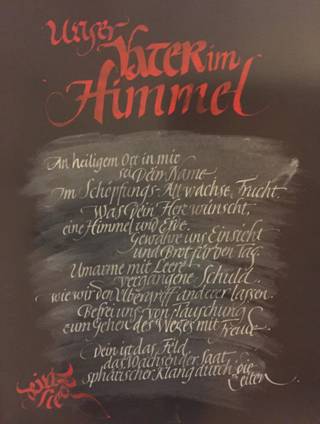 Unser
Vater im
Himmel
An heiligem Ort in mir
sei Dein Name,
im Schöpfungs-All wachse Frucht.
Was Dein Herz wünscht,
eine Himmel und Erde.
Gewähre uns Einsicht
und Brot für den Tag.
Umarme mit Leere
vergangene Schuld
wie wir den Übergriff anderer lassen.
Befreie uns von Täuschung
zum Gehen des Weges mit Freude
Dein ist das Feld
das Wachsen der Saat
sphärischer Klang durch die
Zeiten